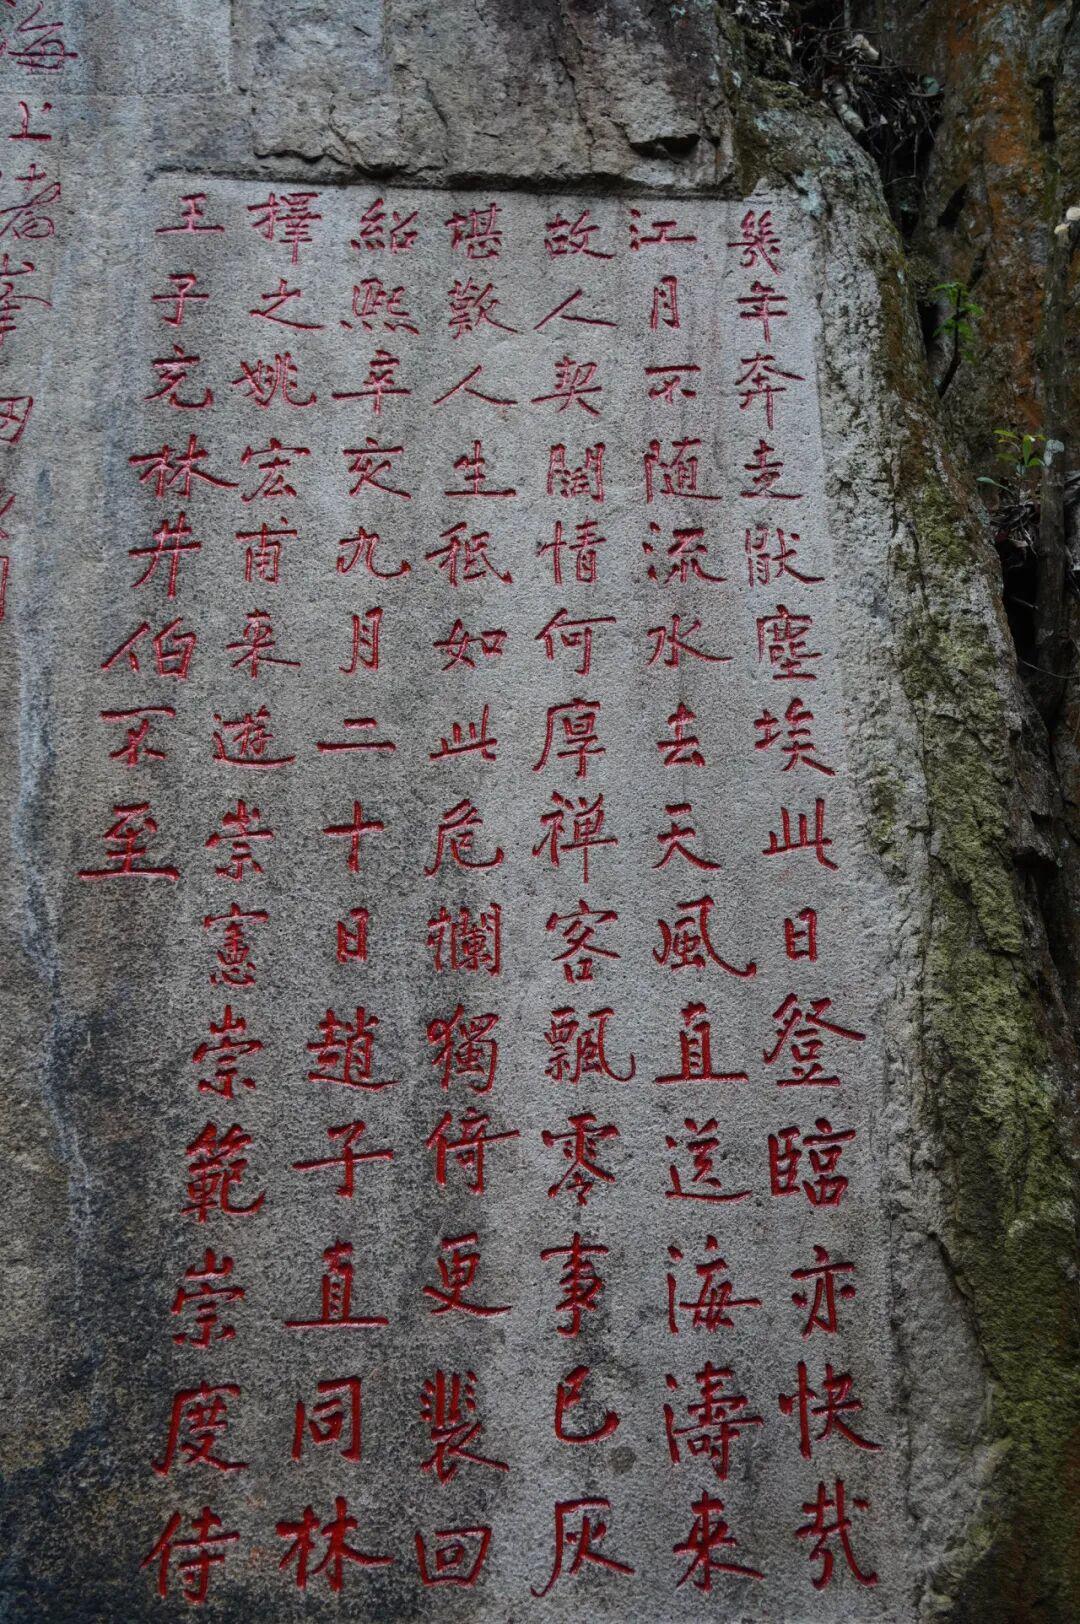 幾年奔走厭塵埃此日登臨亦快哉
江月不随流水去天風直送海濤来
故人契闊情何厚禅客飄零事已灰
堪歎人生秖如此危欄獨倚更裴回
紹熙辛亥九月二十日趙子直同林
擇之姚宏甫来遊崇憲崇範崇度侍
王子充林井伯不至
海上青峯